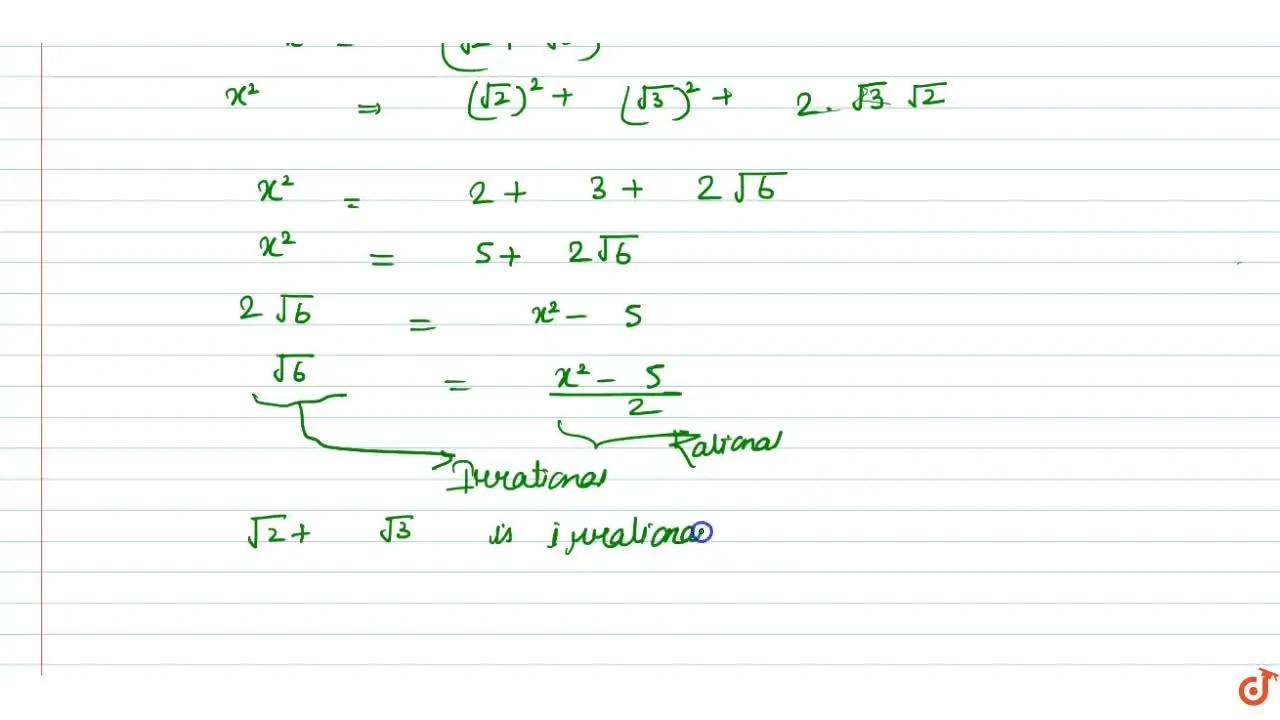 x² ⇒ (√2)² + (√3)² + 2. √3 √2
x² = 2 + 3 + 2√6
x² = 5 + 2√6
2√6 = x² - 5
√6 = x² - 5
2
Rational
Irrational
√2 + √3 is irrational